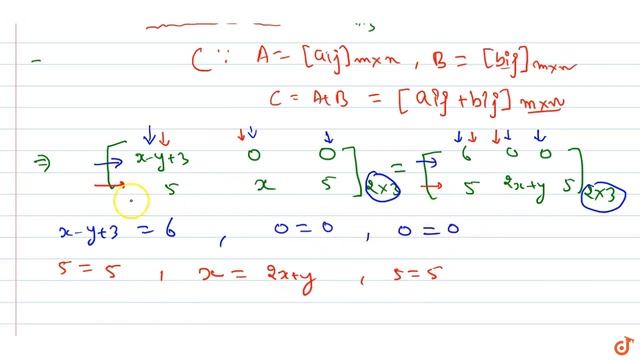 (∵ A = [aij] m×n , B = [bij] m×n
C = A+B = [aij + bij] m×n
⇒ [ x-y+3 0 0 ] = [ 6 0 0 ]
[ 5 x 5 ] 2×3 [ 5 2x+y 5 ] 2×3
x-y+3 = 6 , 0=0 , 0=0
5=5 , x = 2x+y , 5=5